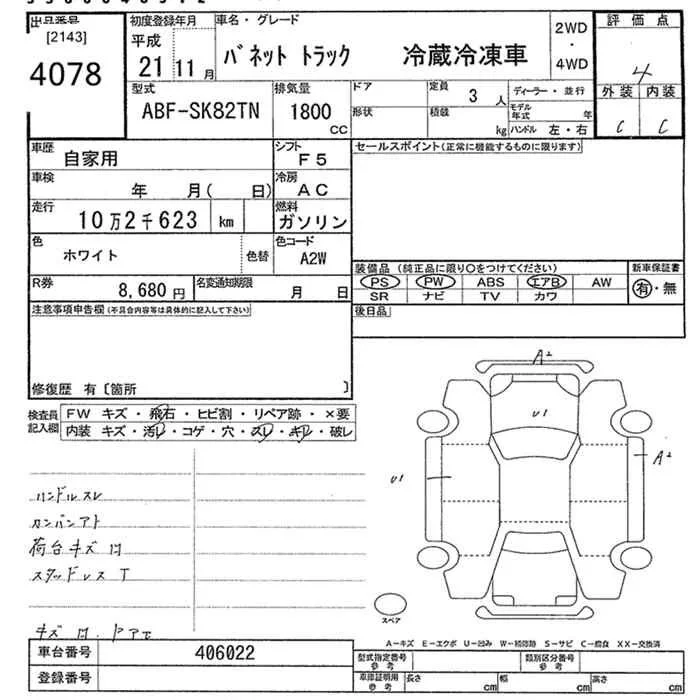 出品番号
[2143]
4078
初度登録年月
平成
21 11月
車名・グレード
バネット トラック 冷蔵冷凍車
2WD
・
4WD
評価点
4
外装 内装
C C
型式
ABF-SK82TN
排気量
1800
CC
ドア
形状
定員
3人
積載
kg
ディーラー・並行
モデル年式 年
ハンドル 左・右
車歴
自家用
シフト
F5
車検
年 月( 日)
冷房
AC
走行
10万2千623 km
燃料
ガソリン
色
ホワイト
色替
色コード
A2W
R券
8,680円
名変通知期限
月 日
セールスポイント(正常に機能するものに限ります)
装備品 (純正品に限り○をつけてください)
PS PW ABS エアB AW
SR ナビ TV カワ
新車保証書
有・無
後日品
注意事項申告欄(不具合内容等は具体的に記入して下さい)
修復歴 有〔箇所 〕
検査員
記入欄
FW キズ・飛石・ヒビ割・リペア跡・×要
内装 キズ・汚レ・コゲ・穴・スレ・キレ・破レ
ハンドルスレ
カンバンアト
荷台キズ凹
スタッドレスT
キズ 凹.
A2
U1
U1
A2
スペア
A-キズ E-エクボ U-凹み W-補修跡 S-サビ C-腐食 XX-交換済
車台番号
406022
登録番号
型式指定番号
参考
類別区分番号
参考
車庫証明用
参考
長さ cm
幅 cm
高さ cm